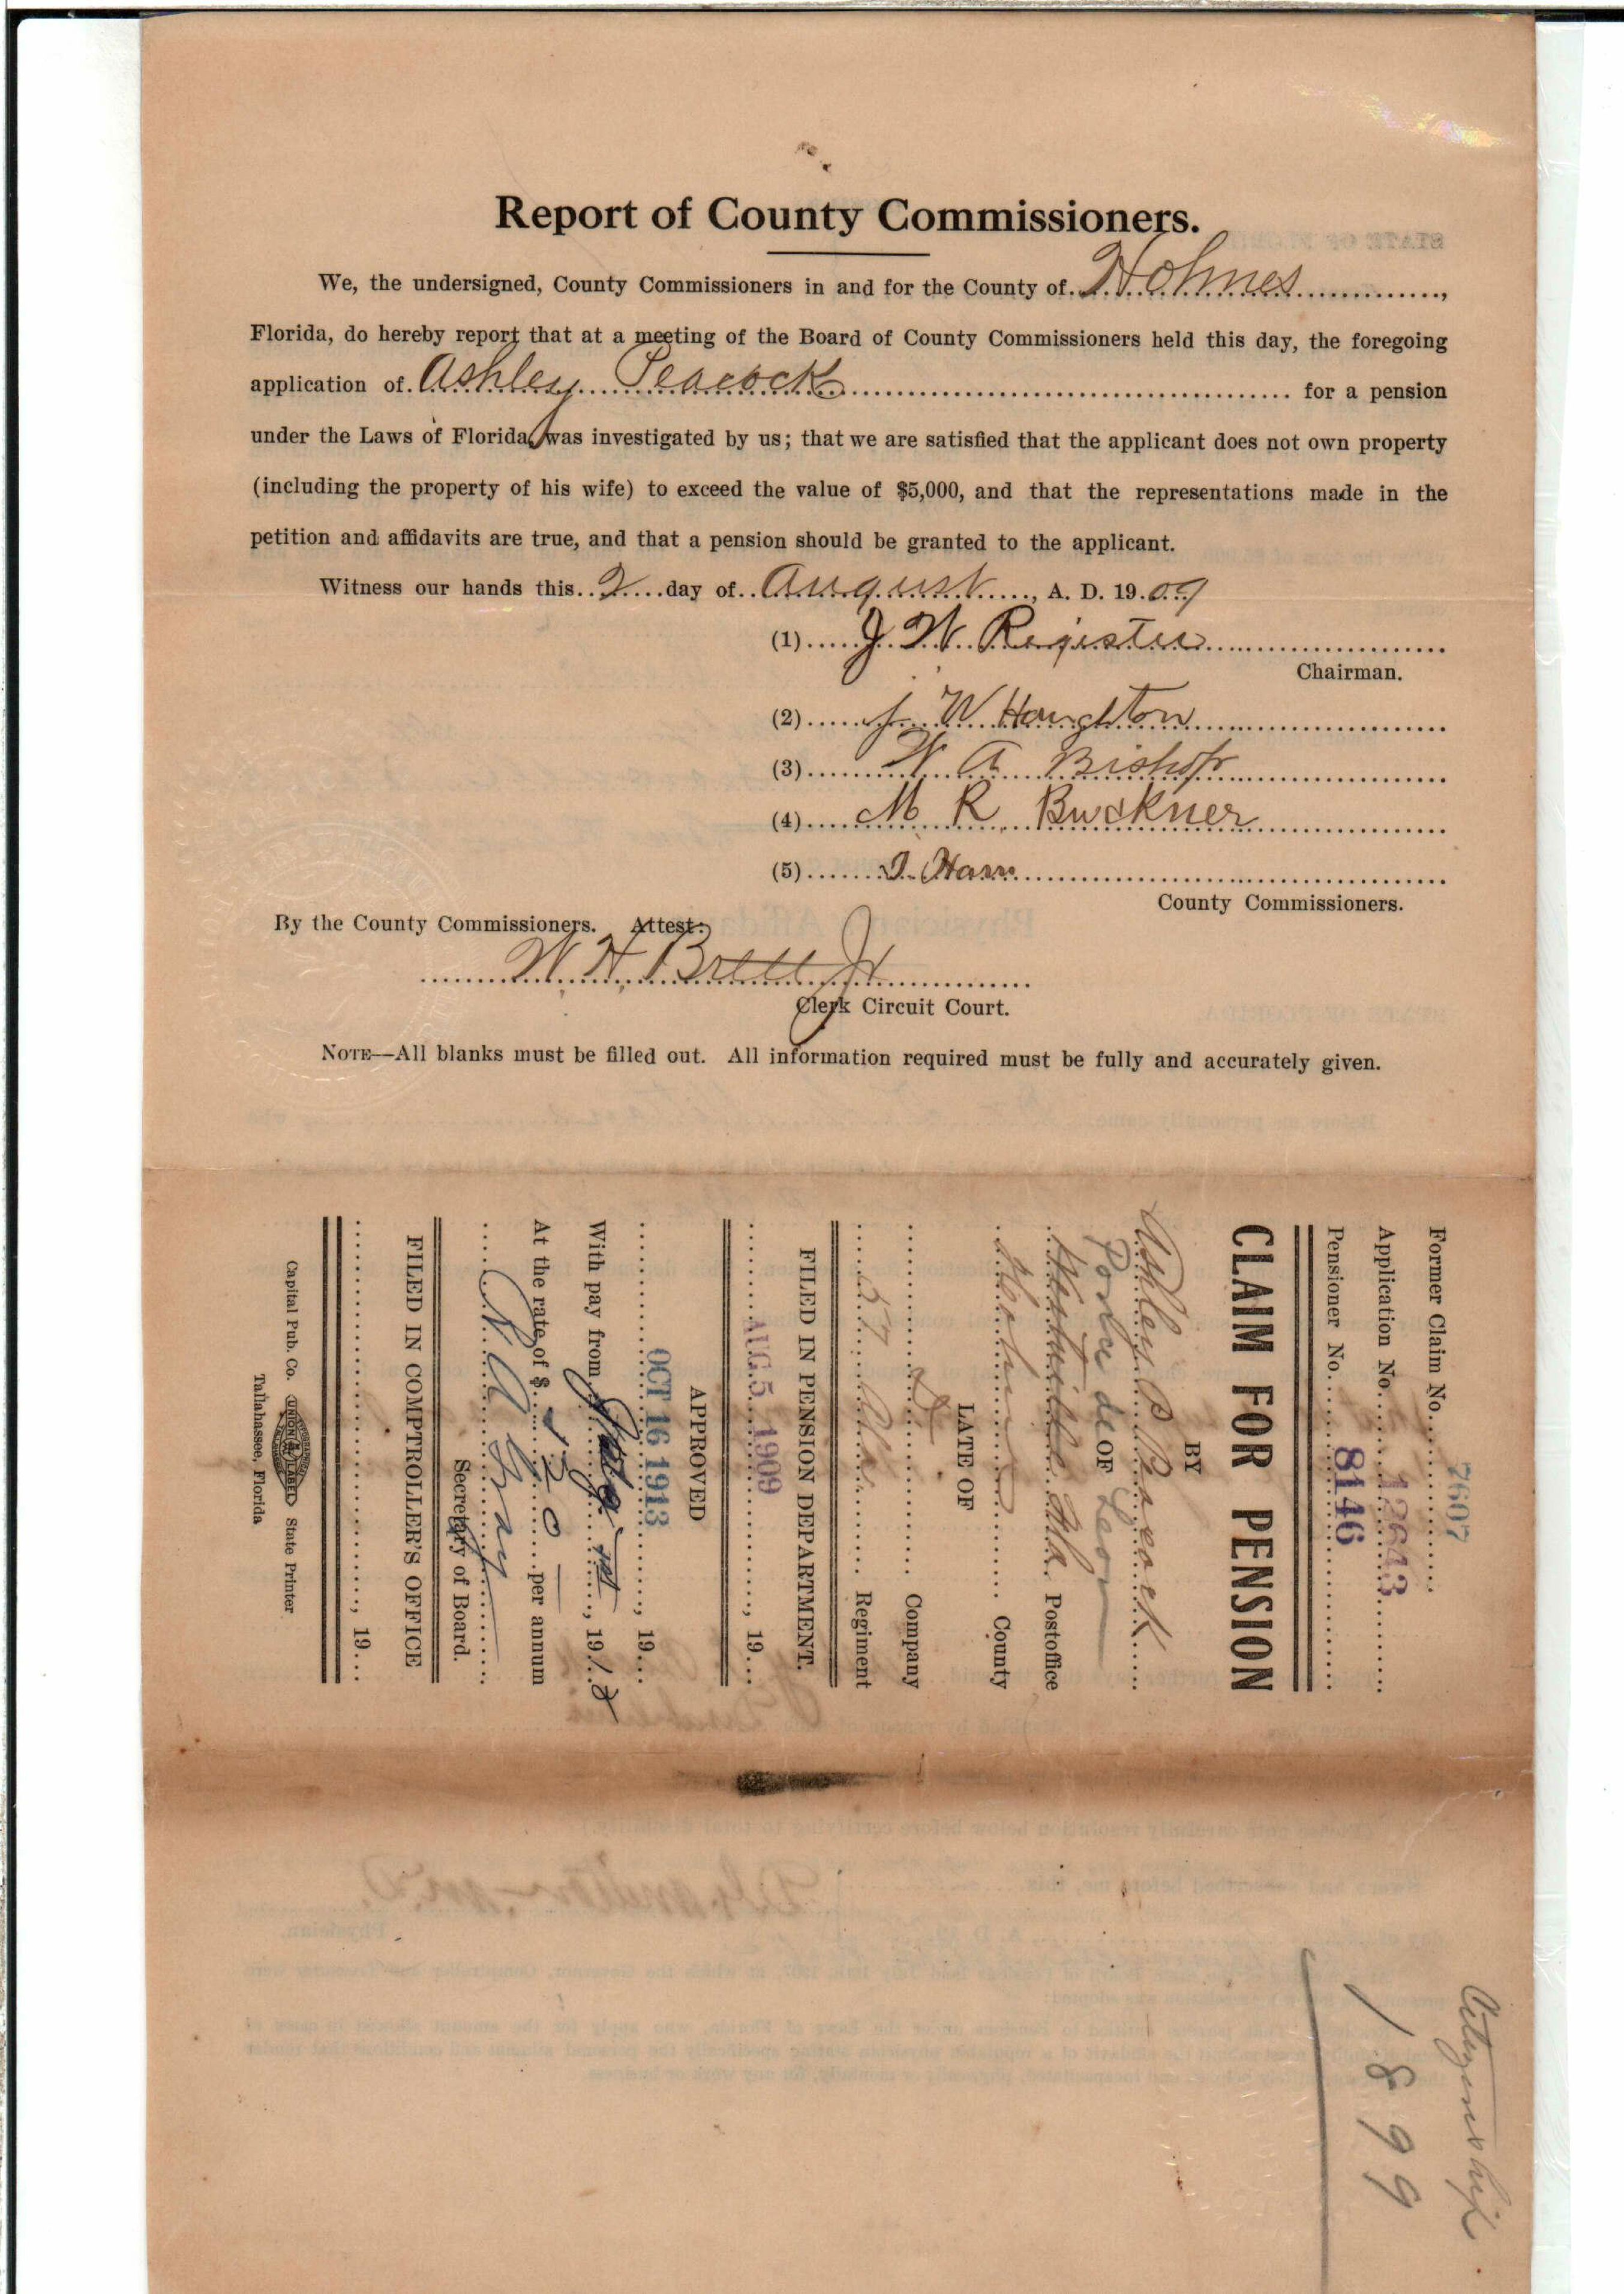 Report of County Commissioners.
We, the undersigned, County Commissioners in and for the County of Holmes,
Florida, do hereby report that at a meeting of the Board of County Commissioners held this day, the foregoing
application of Ashley Peacock for a pension
under the Laws of Florida, was investigated by us; that we are satisfied that the applicant does not own property
(including the property of his wife) to exceed the value of $5,000, and that the representations made in the
petition and affidavits are true, and that a pension should be granted to the applicant.
Witness our hands this 2 day of August, A. D. 1909
(1) J. W. Register
Chairman.
(2) J W Houghton
(3) W A Bishop
(4) M R Buckner
(5) J. Harr
County Commissioners.
By the County Commissioners. Attest:
W. H. Brett Jr
Clerk Circuit Court.
NOTE—All blanks must be filled out. All information required must be fully and accurately given.
Former Claim No. 7607
Application No. 12643
Pensioner No. 8146
CLAIM FOR PENSION
BY
Ashley B Peacock
Ponce de Leon
OF
Westville Fla. Postoffice
Holmes County
LATE OF
Company
57 Ala Regiment
FILED IN PENSION DEPARTMENT.
AUG 5 1909, 19
APPROVED
OCT 16 1913, 19
With pay from July 1st, 1913
At the rate of $120 per annum
Secretary of Board.
FILED IN COMPTROLLER'S OFFICE
, 19
Capital Pub. Co. UNION LABEL State Printer
Tallahassee, Florida
Citizenship
1899